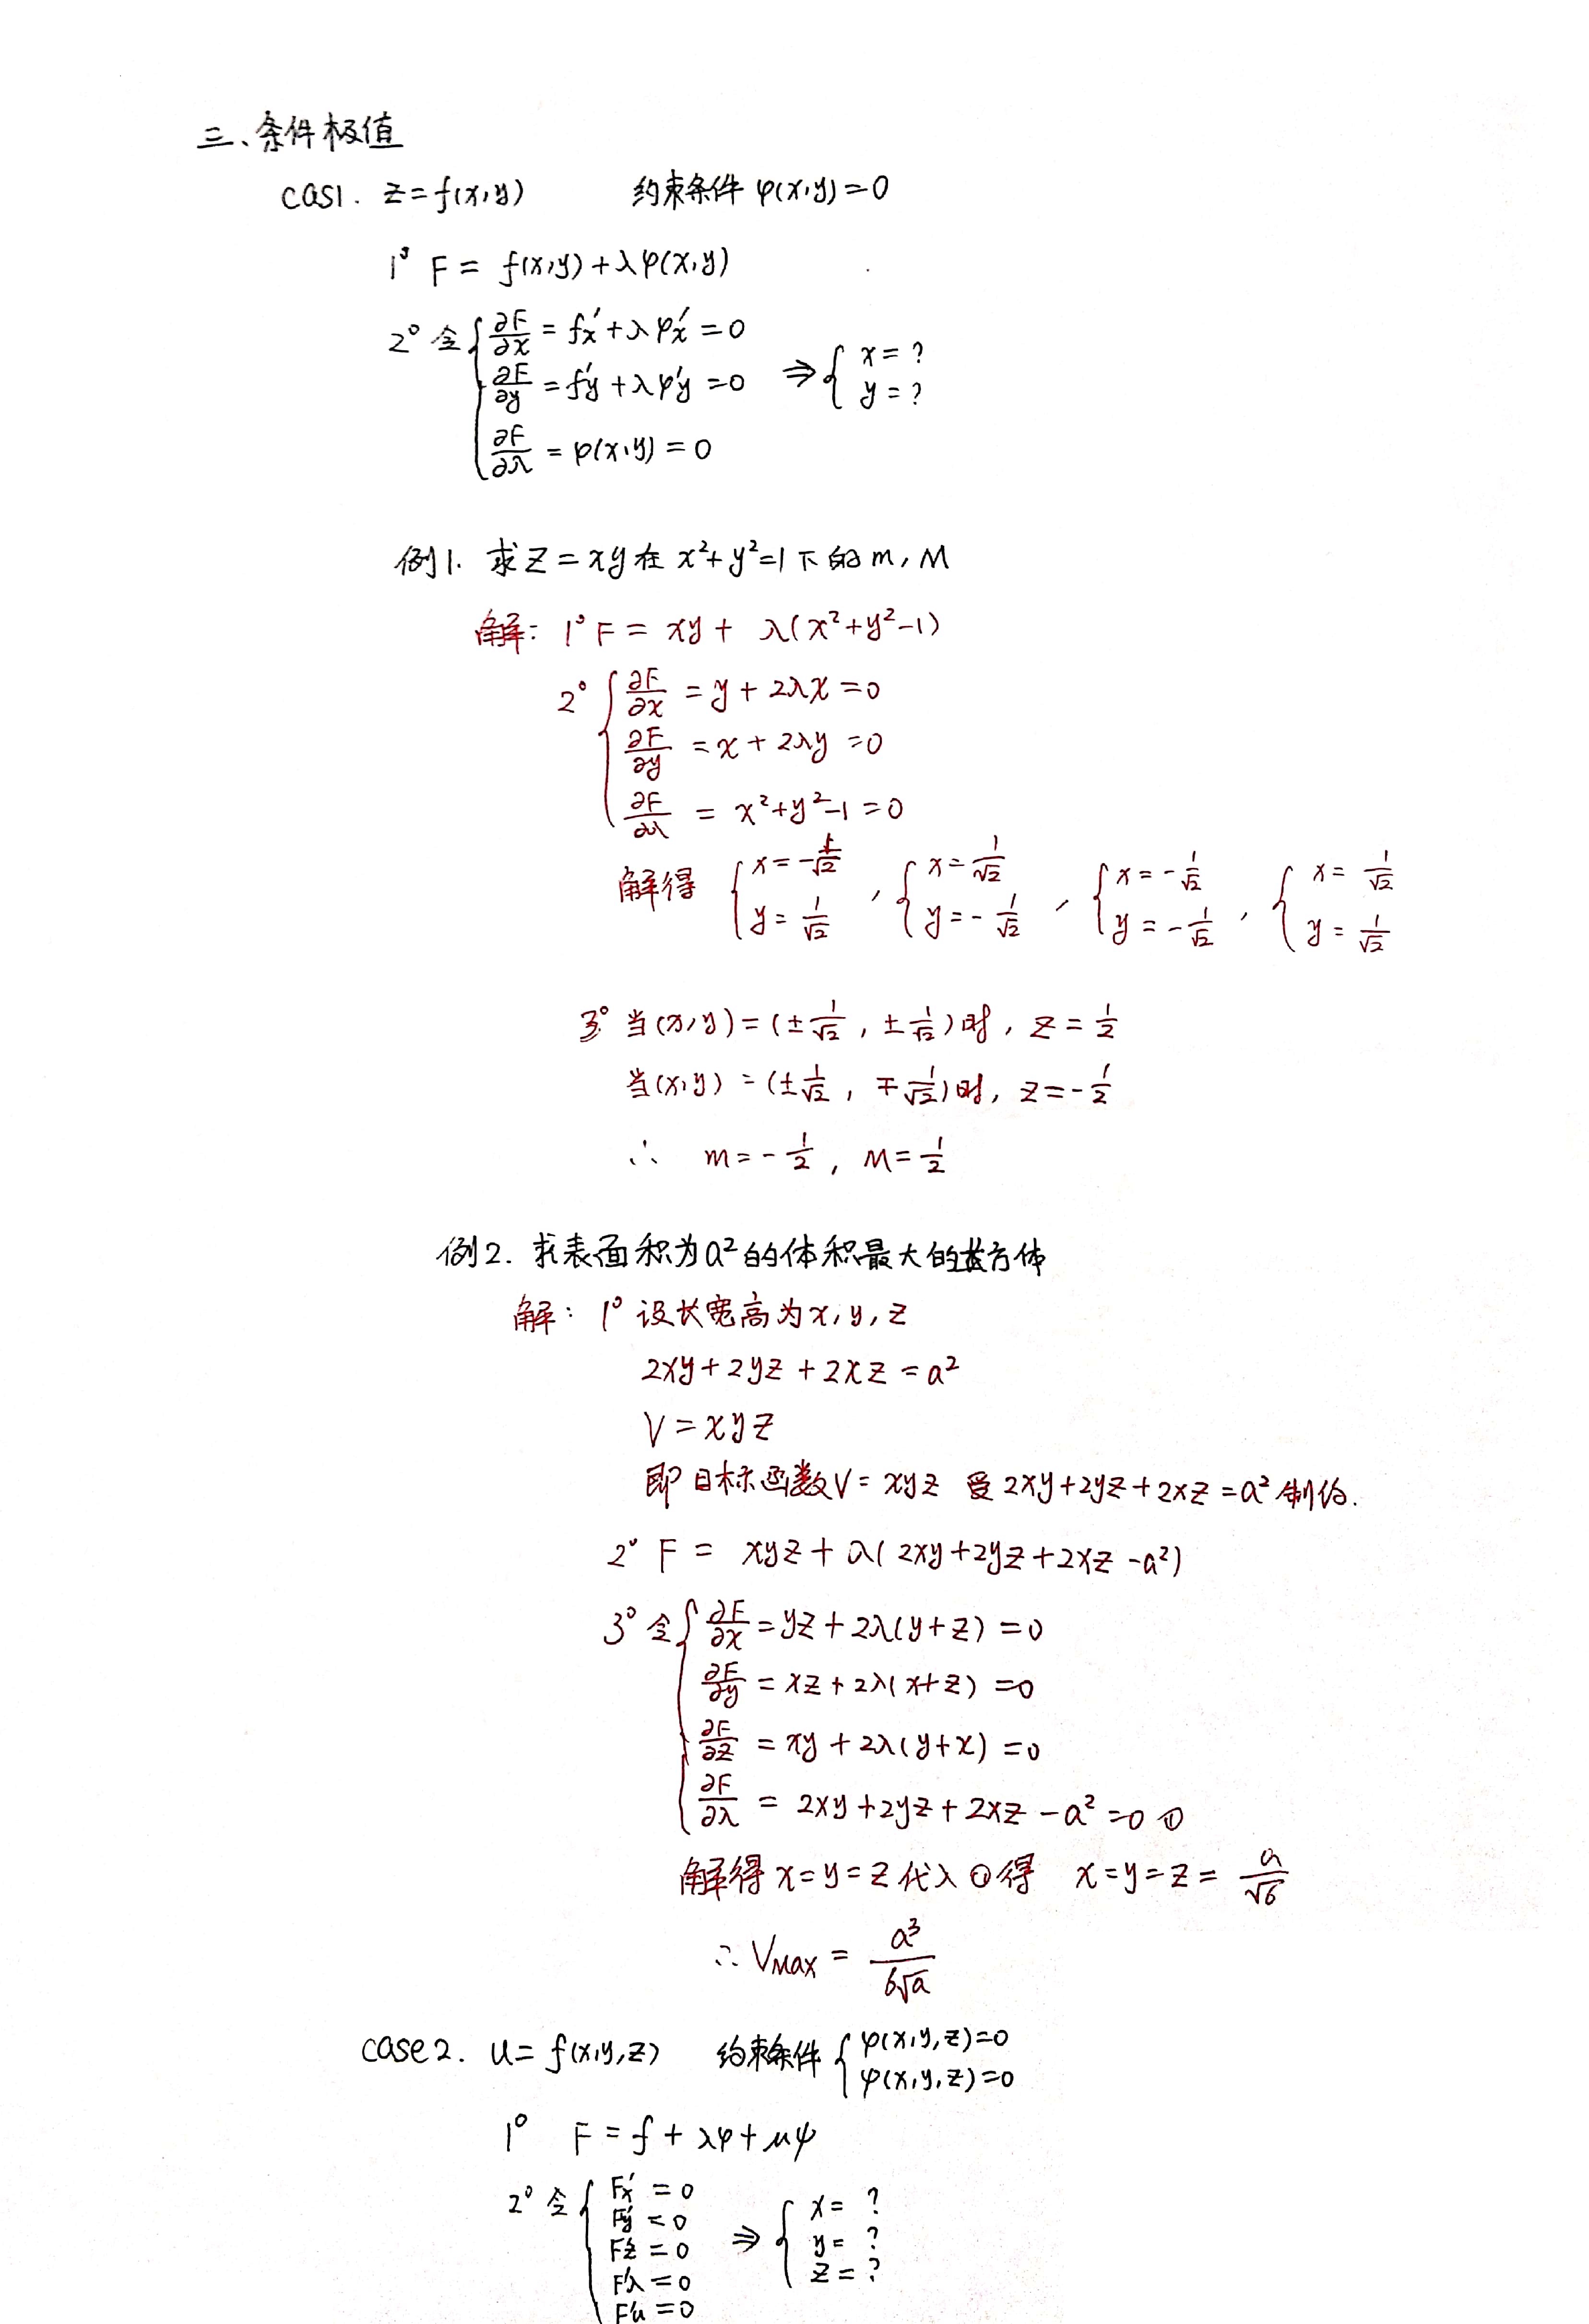 三、条件极值
cas1. z=f(x,y) 约束条件 φ(x,y)=0
1° F = f(x,y)+λφ(x,y)
2° 令{ ∂F/∂x = fx′+λφx′=0
∂F/∂y = f′y+λφ′y=0 ⇒ { x=? y=?
∂F/∂λ = φ(x,y)=0
例1. 求z=xy在x²+y²=1下的m,M
解: 1° F = xy+ λ(x²+y²-1)
2° { ∂F/∂x = y+2λx=0
∂F/∂y = x+2λy=0
∂F/∂λ = x²+y²-1=0
解得 { x=-1/√2 y=1/√2 , { x=1/√2 y=-1/√2 , { x=-1/√2 y=-1/√2 , { x=1/√2 y=1/√2
3° 当(x,y)=(±1/√2, ±1/√2)时, z=1/2
当(x,y)=(±1/√2, ∓1/√2)时, z=-1/2
∴ m=-1/2, M=1/2
例2. 求表面积为a²的体积最大的长方体
解: 1° 设长宽高为x,y,z
2xy+2yz+2xz=a²
V=xyz
即目标函数V=xyz 受2xy+2yz+2xz=a²制约.
2° F = xyz+λ(2xy+2yz+2xz-a²)
3° 令{ ∂F/∂x = yz+2λ(y+z)=0
∂F/∂y = xz+2λ(x+z)=0
∂F/∂z = xy+2λ(y+x)=0
∂F/∂λ = 2xy+2yz+2xz-a²=0 ①
解得x=y=z代入①得 x=y=z=a/√6
∴ VMAX = a³/6√a
case2. u=f(x,y,z) 约束条件{ φ(x,y,z)=0 φ(x,y,z)=0
1° F=f+λφ+μψ
2° 令{ Fx′=0
F′y=0
F′z=0 ⇒ { x=? y=? z=?
F′λ=0
F′u=0